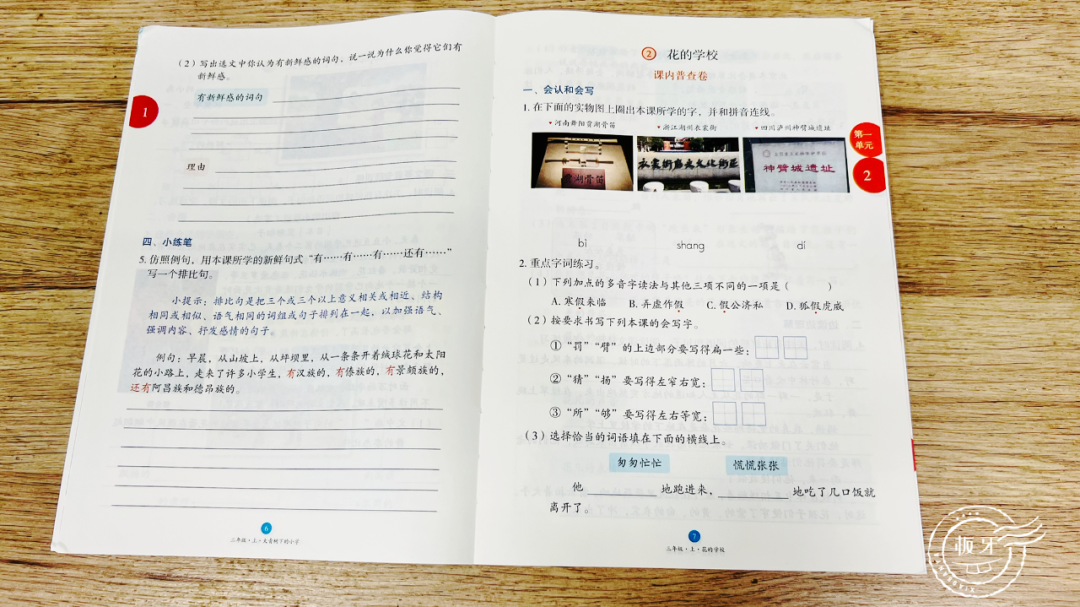 1
(2)写出选文中你认为有新鲜感的词句、说一说为什么你觉得它们有
新鲜感。
有新鲜感的词句
理由
四、小练笔
5. 仿照例句,用本课所学的新鲜句式“有……有……有……还有……”
写一个排比句。
小提示:排比句是把三个或三个以上意义相关或相近、结构
相同或相似、语气相同的词组或句子排列在一起,以加强语气、
强调内容、抒发感情的句子。
例句:早晨,从山坡上,从坪坝里,从一条条开着绒球花和太阳
花的小路上,走来了许多小学生,有汉族的,有傣族的,有景颇族的,
还有阿昌族和德昂族的。
6
三年级·上·大青树下的小学
② 花的学校
课内普查卷
一、会认和会写
1. 在下面的实物图上圈出本课所学的字,并和拼音连线。
• 河南舞阳贾湖骨笛
• 浙江湖州衣裳街
• 四川泸州神臂城遗址
贾湖骨笛
衣裳街历史文化街区
神臂城遗址
bì
shang
dí
2. 重点字词练习。
(1)下列加点的多音字读法与其他三项不同的一项是( )
A. 寒假来临 B. 弄虚作假 C. 假公济私 D. 狐假虎威
(2)按要求书写下列本课的会写字。
①“罚”“臂”的上边部分要写得扁一些:
②“精”“扬”要写得左窄右宽:
③“所”“够”要写得左右等宽:
(3)选择恰当的词语填在下面的横线上。
匆匆忙忙
慌慌张张
他 地跑进来, 地吃了几口饭就
离开了。
7
三年级·上·花的学校
第一
单元
2
板牙